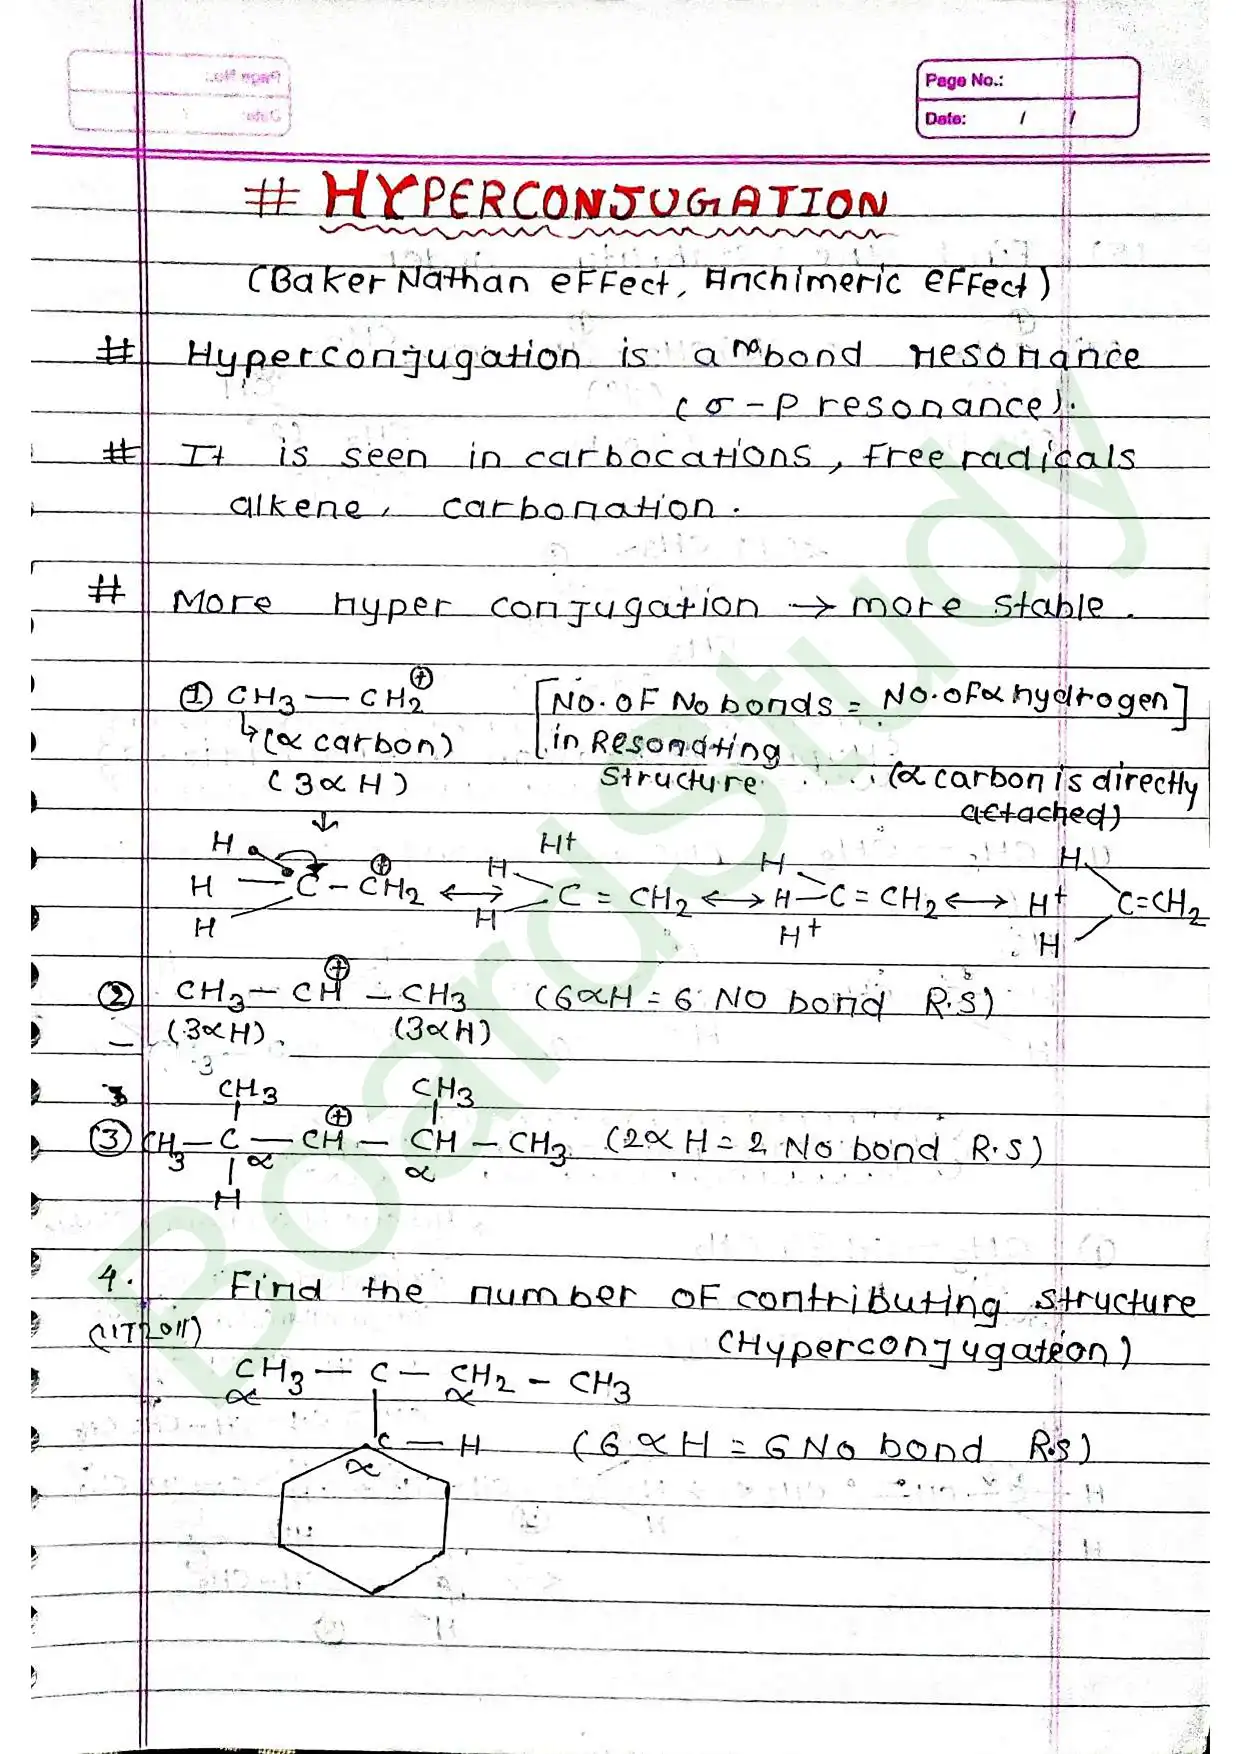 Page No.:
Date: / /
# HYPERCONJUGATION
(Baker Nathan effect, Anchimeric effect)
# Hyperconjugation is a no bond resonance
(σ-P resonance).
# It is seen in carbocations, free radicals
alkene, carbonation.
# More hyper conjugation → more stable.
① CH3 — CH2⊕ [No. of No bonds = No. of α hydrogen]
↳(α carbon) in Resonating
(3αH) structure (α carbon is directly
↓ attached)
H H+
H H H
H — C - CH2⊕ ↔ C = CH2 ↔ H - C = CH2 ↔ H+ C=CH2
H H H+ H
② CH3 - CH⊕ - CH3 (6αH = 6 NO bond R.S)
(3αH) (3αH)
3
CH3 CH3
③ CH3 — C — CH⊕ — CH — CH3 (2αH = 2 No bond R.S)
α α
H
4. Find the number of contributing structure
(IIT2011) (Hyperconjugation)
CH3 — C — CH2 - CH3
α α
C — H (6αH = 6 No bond R.S)
α
BoardStudy